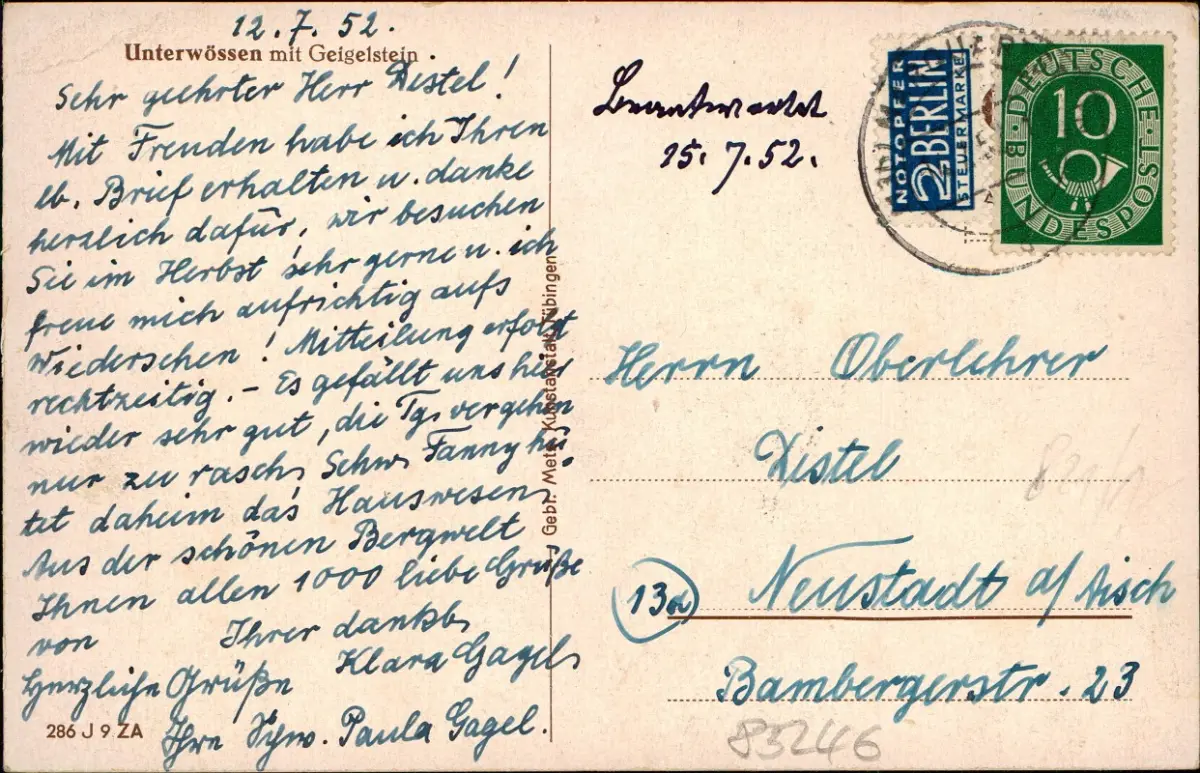 12.7.52.
Unterwössen mit Geigelstein
Sehr geehrter Herr Distel!
Mit Freuden habe ich Ihren
lb. Brief erhalten u. danke
herzlich dafür, wir besuchen
Sie im Herbst sehr gerne u. ich
freue mich aufrichtig aufs
Wiedersehen! Mitteilung erfolgt
rechtzeitig. - Es gefällt uns hier
wieder sehr gut, die Tg. vergehen
nur zu rasch. Schw. Fanny hü-
tet daheim das Hauswesen.
Aus der schönen Bergwelt
Ihnen allen 1000 liebe Grüße
von Ihrer dankb.
Klara Gagel.
Herzliche Grüße
Ihre Schw. Paula Gagel.
286 J 9 ZA
Gebr. Metz, Kunstanstalt, Tübingen
Beantwortet
15.7.52.
NOTOPFER
2 BERLIN
STEUERMARKE
DEUTSCHE BUNDESPOST
10
Herrn Oberlehrer
Distel
(13a) Neustadt a/Aisch
Bambergerstr. 23
83246